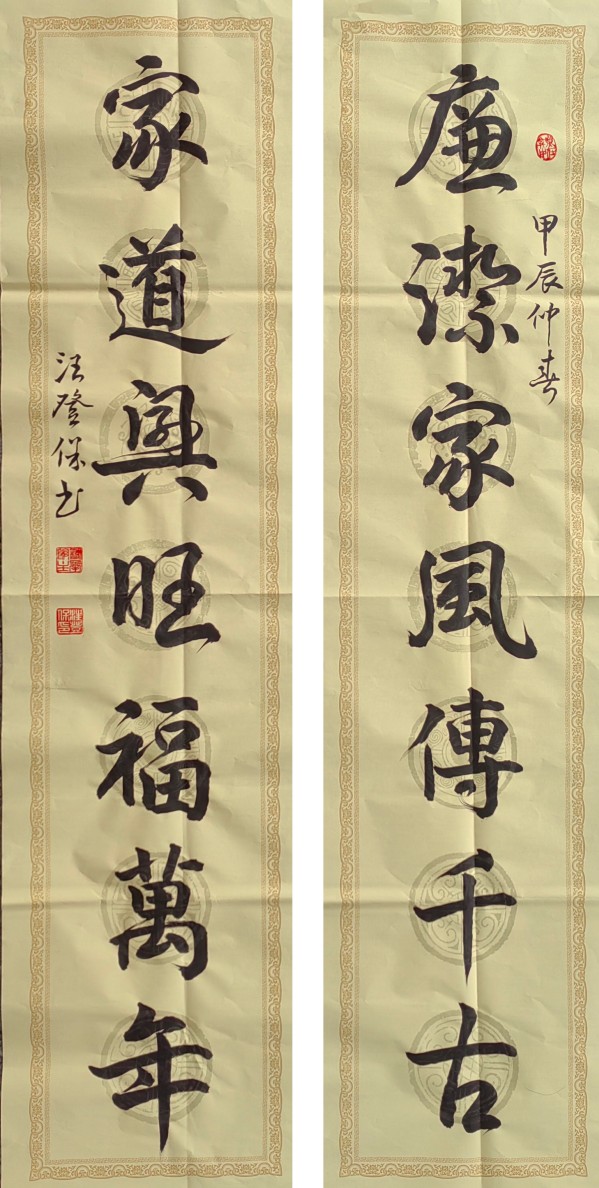 廉潔家風傳千古
甲辰仲春
家道興旺福萬年
汪登保书